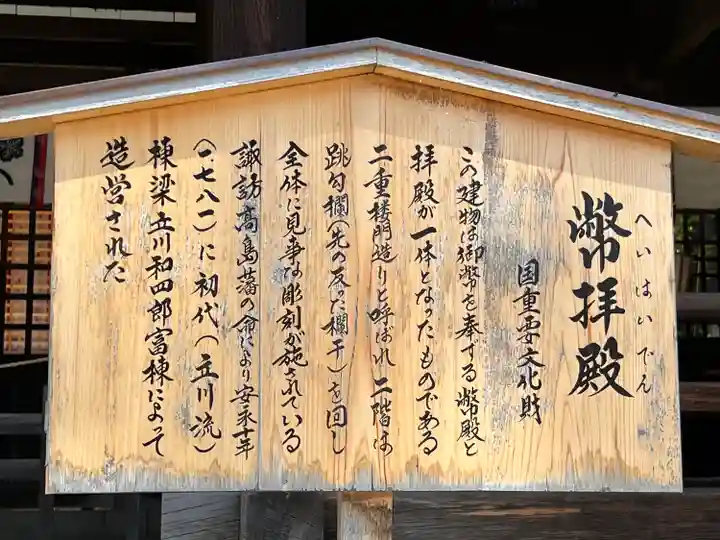 へいはいでん
幣拝殿
国重要文化財
この建物は御幣を奉する幣殿と
拝殿が一体となったものである
二重楼門造りと呼ばれ二階は
跳勾欄(先の反った欄干)を回し
全体に見事な彫刻が施されている
諏訪高島藩の命により安永十年
(一七八一)に初代(立川流)
棟梁立川和四郎富棟によって
造営された